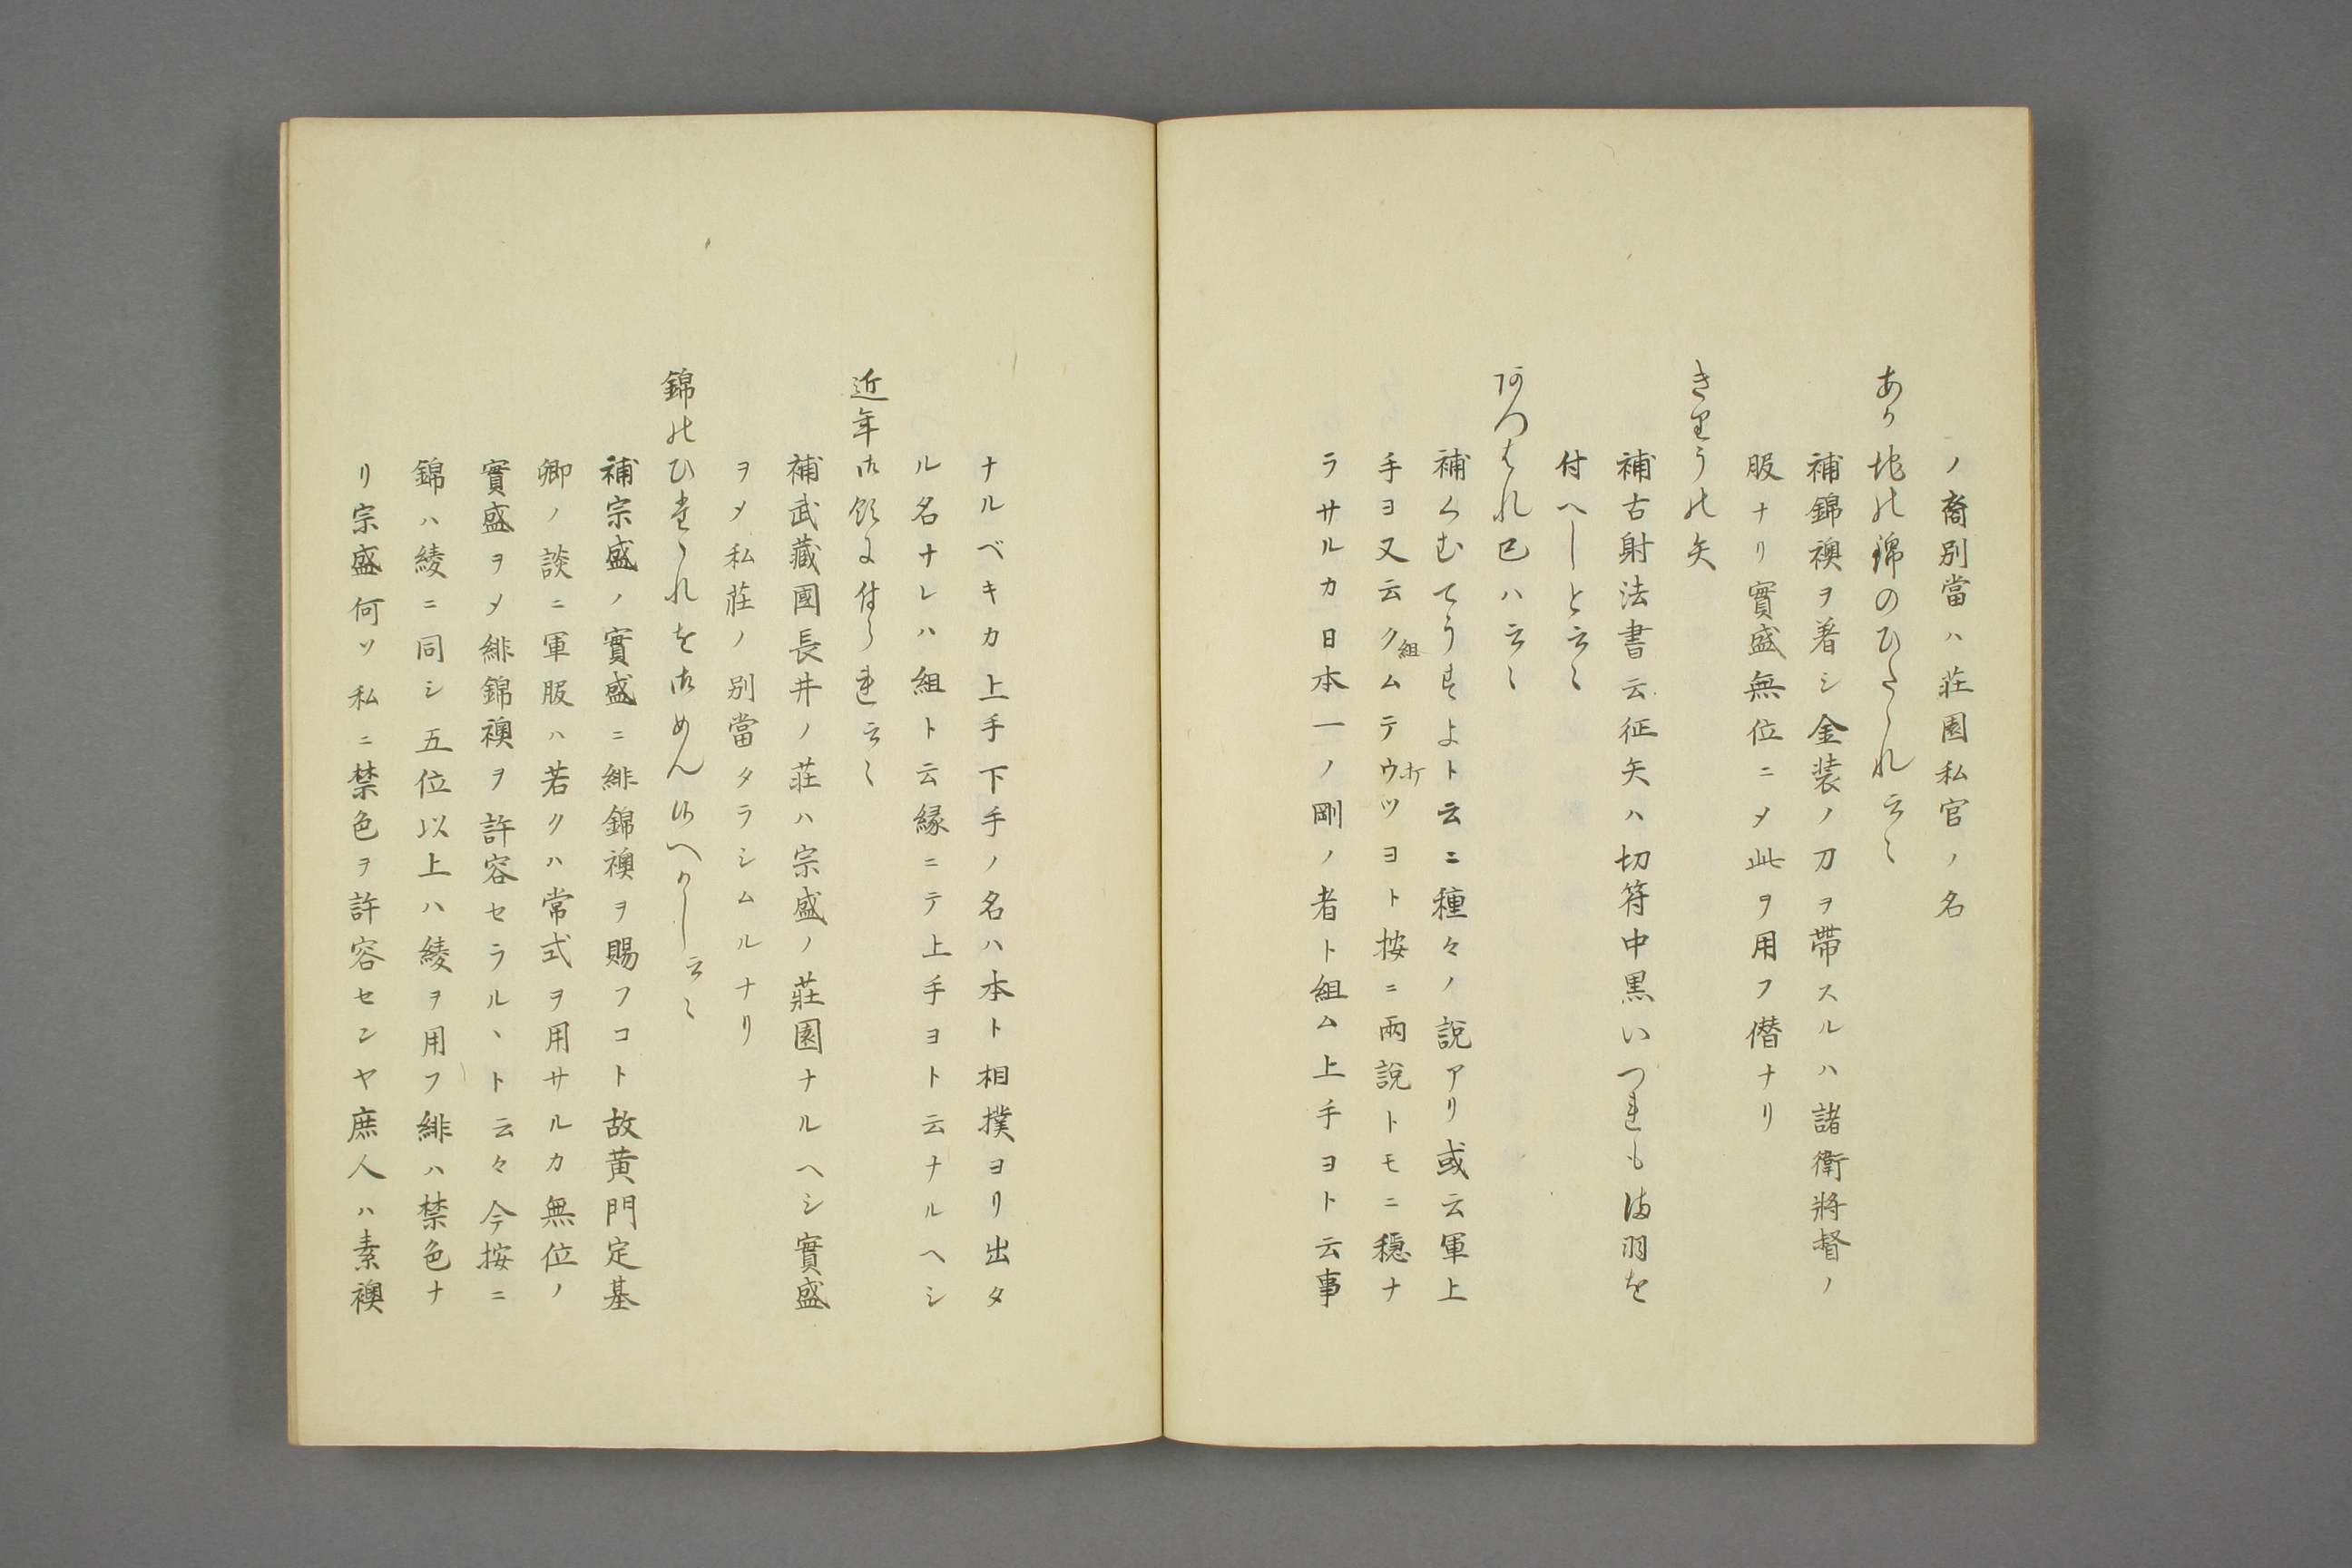 ノ裔別當ハ莊園私官ノ名
あか地の錦のひたゝれ云〻
補錦襖ヲ着シ金装ノ刀ヲ帶スルハ諸衛將督ノ
服ナリ實盛無位ニメ此ヲ用フ僭ナリ
きりうの矢
補古射法書云征矢ハ切符中黒いつれも満羽を
付へしと云〻
あつはれ己ハ云〻
補くむてうすよト云ニ種々ノ說アリ或云軍上
手ヨ又云クムテウツヨト按ニ兩說トモニ穏ナ
組
打
ラサルカ日本一ノ剛ノ者ト組ム上手ヨト云事
ナルベキカ上手下手ノ名ハ本ト相撲ヨリ出タ
ル名ナレハ組ト云縁ニテ上手ヨト云ナルヘシ
近年御領に付られ云〻
補武藏國長井ノ莊ハ宗盛ノ莊園ナルヘシ實盛
ヲメ私莊ノ別當タラシムルナリ
錦のひたゝれを御めん候へかし云〻
補宗盛ノ實盛ニ緋錦襖ヲ賜フコト故黄門定基
卿ノ談ニ軍服ハ若クハ常式ヲ用サルカ無位ノ
實盛ヲメ緋錦襖ヲ許容セラルヽト云々今按ニ
錦ハ綾ニ同シ五位以上ハ綾ヲ用フ緋ハ禁色ナ
リ宗盛何ソ私ニ禁色ヲ許容センヤ庶人ハ素襖